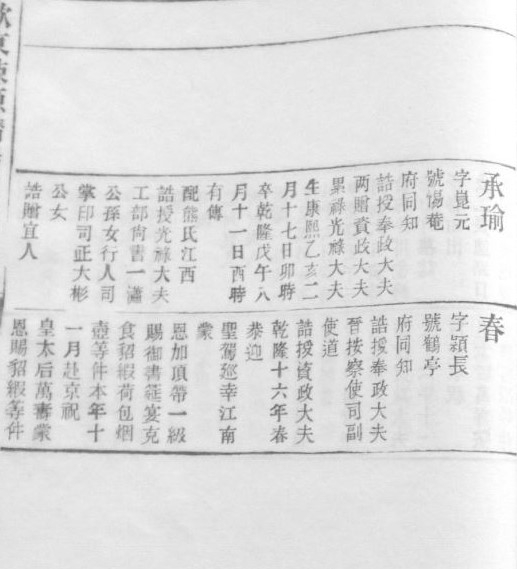 承瑜
字崑元
號愓菴
府同知
誥授奉政大夫
两贈資政大夫
累祿光祿大夫
生康熙乙亥二
月十七日卯時
卒乾隆戊午八
月十一日酉時
有傳
配熊氏江西
誥授光祿大夫
工部尙書一瀟
公孫女行人司
掌印司正大彬
公女
誥贈宜人
春
字穎長
號鶴亭
府同知
誥授奉政大夫
晉按察使司副
使道
誥授資政大夫
乾隆十六年春
恭迎
聖駕廵幸江南
蒙
恩加頂帶一級
賜御書筵宴克
食貂緞荷包烟
壺等件本年十
一月赴京祝
皇太后萬壽蒙
恩賜貂緞等件